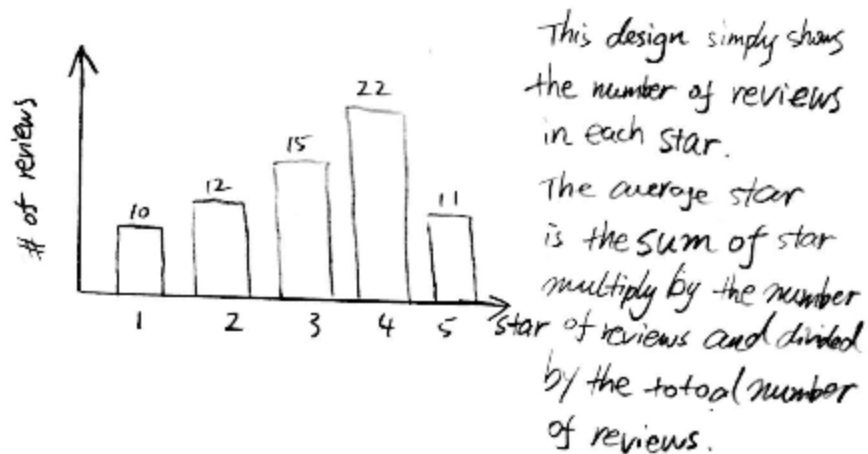 # of reviews
10
12
15
22
11
1 2 3 4 5 star
This design simply shows
the number of reviews
in each star.
The average star
is the sum of star
multiply by the number
of reviews and divided
by the totoal number
of reviews.